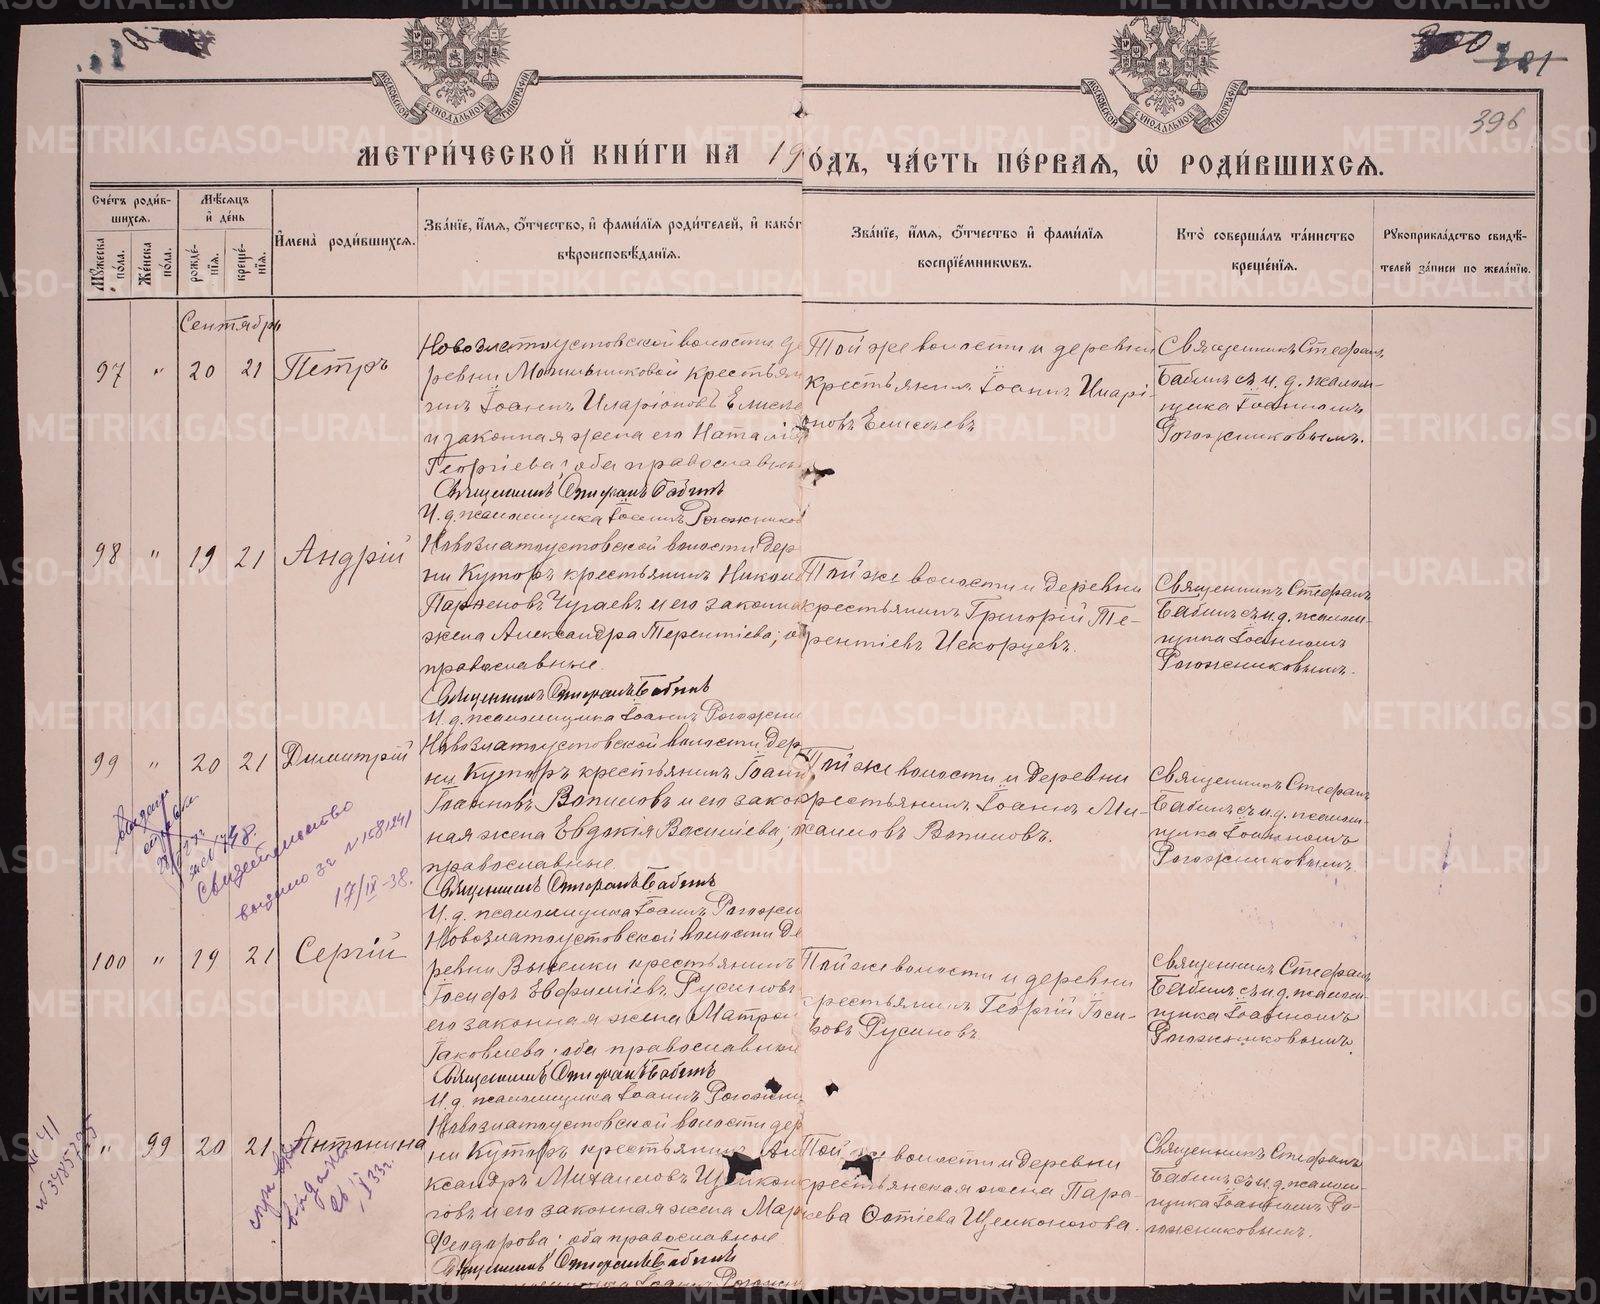 396
МЕТРИ́ЧЕСКОЙ КНИ́ГИ НА 19
О́ДЪ, ЧА́СТЬ ПЕ́РВАѦ, Ѡ҆ РОДИ́ВШИХСѦ.
МОСКОВСКОЙ СѴНОДАЛЬНОЙ ТИПОГРАФІИ
МОСКОВСКОЙ СѴНОДАЛЬНОЙ ТИПОГРАФІИ
Сче́тъ роди́в-
шихсѧ.
Мужеска по́ла.
Же́нска по́ла.
Мѣ́сѧцъ
и҆ де́нь
рожде́-
нїѧ.
креще́-
нїѧ.
И҆мена̀ роди́вшихсѧ.
Зва́нїе, и҆́мѧ, ѻ҆́тчество, и҆ фами́лїѧ роди́телей, и҆ како́г
вѣроисповѣ́данїѧ.
Зва́нїе, и҆́мѧ, ѻ҆́тчество и҆ фами́лїѧ
воспрїе́мникѡвъ.
Кто̀ соверша́лъ та́инство
креще́нїѧ.
Рꙋкоприкла́дство свидѣ́-
телей за́писи по жела́нїю.
Сентябрь
97 " 20 21 Петръ
Новозлатоустовской волости де
ревни Мошынниковой крестьян
инъ Іоаннъ Иларіоновъ Елисее
и законная жена его Наталія
Георгіева; оба православные
Священникъ Стефанъ Бабинъ
И. д. псаломщика Іоаннъ Рогожников
Той же волости и деревни
крестьянинъ Іоаннъ Илари-
оновъ Елисѣевъ
Священникъ Стефанъ
Бабинъ съ и. д. псалом-
щика Іоанномъ
Рогожниковымъ.
98 " 19 21 Андрій
Новозлатоустовской волости дер
ни Куторъ крестьянинъ Никола
Парѳеновъ Чугаевъ и его законна
жена Александра Терентіева; о
православные.
Священникъ Стефанъ Бабинъ
И. д. псаломщика Іоаннъ Рогожни
Той же волости и деревни
крестьянинъ Григорій Те-
рентіевъ Искорцевъ.
Священникъ Стефанъ
Бабинъ съ и. д. псалом-
щика Іоанномъ
Рогожниковымъ.
99 " 20 21 Димитрій
Новозлатоустовской волости дер
ни Куторъ крестьянинъ Іоанн
Іоанновъ Вопиловъ и его закон
ная жена Евдокія Василіева; о
православные.
Священникъ Стефанъ Бабинъ
И. д. псаломщика Іоаннъ Рогожни
Той же волости и деревни
крестьянинъ Іоаннъ Ми-
хаиловъ Вопиловъ.
Священникъ Стефанъ
Бабинъ съ и. д. псалом-
щика Іоанномъ
Рогожниковымъ
Свидетельство
выдано за №1581241
17/IX-38.
100 " 19 21 Сергій
Новозлатоустовской волости де
ревни Выселки крестьянинъ
Іосифъ Евфиміевъ Русиновъ
его законная жена Матрон
Іаковлева; оба православные
Священникъ Стефанъ Бабинъ
И. д. псаломщика Іоаннъ Рогожни
Той же волости и деревни
крестьянинъ Георгій Іоси-
фовъ Русиновъ
Священникъ Стефанъ
Бабинъ съ и. д. псалом-
щика Іоанномъ
Рогожниковымъ.
" 99 20 21 Антонина
Новозлатоустовской волости дер
ни Куторъ крестьянинъ Але
ксандръ Михаиловъ Щелконо
говъ и его законная жена Мар
Ѳеодорова; оба православные
Священникъ Стефанъ Бабинъ
псаломщика Іоаннъ Рогожни
Той же волости и деревни
крестьянская жена Пара-
скева Фотіева Щелконогова.
Священникъ Стефанъ
Бабинъ съ и. д. псалом-
щика Іоанномъ Ро-
гожниковымъ.
справка
выдана
26/X 33г.
METRIKI.GASO-URAL.RU